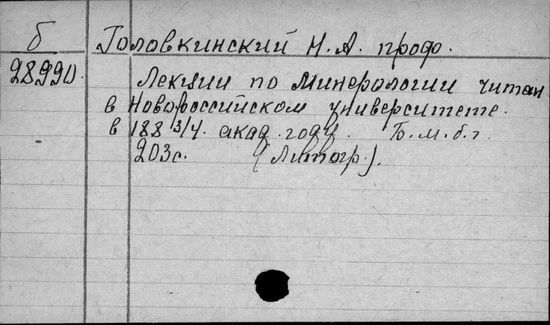 б Головкинский Н.А. проф.
28990. Лекции по минерологии читан
в Новороссийском университете.
в 188 3/4. акад. году. Б.м.б.г.
203с. (Литогр.).